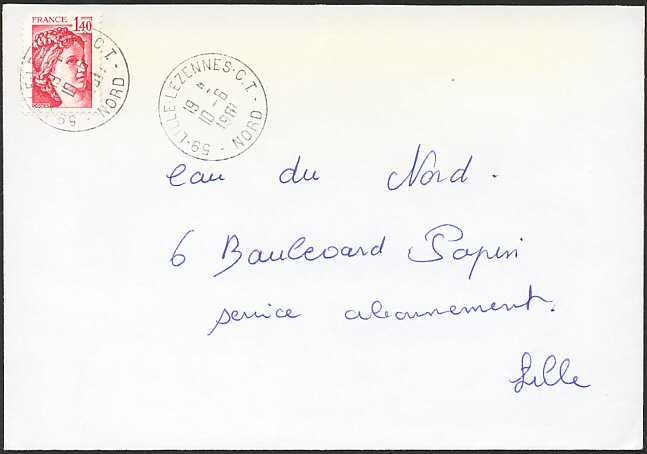 FRANCE
1,40
POSTES
59-LILLE-LEZENNES-C.T.-
NORD
eau du Nord.
6 Boulevard Papin
service abonnement.
Lille